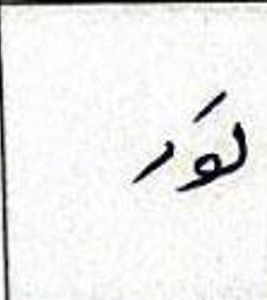 لوَر